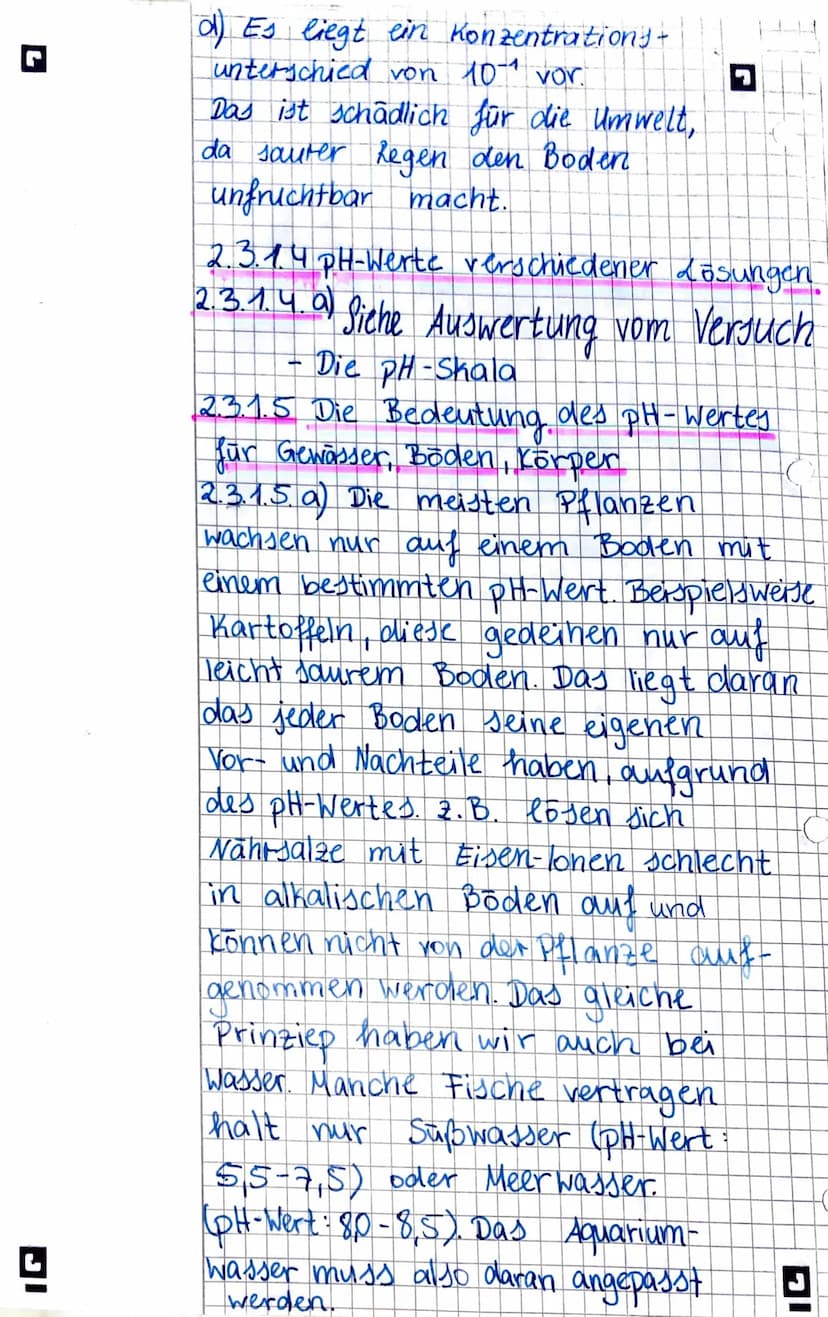 d) Es liegt ein Konzentrations-
unterschied von 10⁻¹ vor.
Das ist schädlich für die Umwelt,
da saurer Regen den Boden
unfruchtbar macht.
2.3.1.4 pH-Werte verschiedener Lösungen.
2.3.1.4.a) Siehe Auswertung vom Versuch
- Die pH-Skala
2.3.1.5 Die Bedeutung des pH-Wertes
für Gewässer, Böden, Körper
2.3.1.5.a) Die meisten Pflanzen
wachsen nur auf einem Boden mit
einem bestimmten pH-Wert. Beispielsweise
Kartoffeln, diese gedeihen nur auf
leicht saurem Boden. Das liegt daran
das jeder Boden seine eigenen
Vor- und Nachteile haben, aufgrund
des pH-Wertes. z.B. lösen sich
Nährsalze mit Eisen-Ionen schlecht
in alkalischen Böden auf und
können nicht von der Pflanze auf-
genommen werden. Das gleiche
Prinziep haben wir auch bei
Wasser. Manche Fische vertragen
halt nur Süßwasser (pH-Wert:
5,5-7,5) oder Meerwasser.
(pH-Wert: 8,0-8,5). Das Aquarium-
wasser muss also daran angepasst
werden.